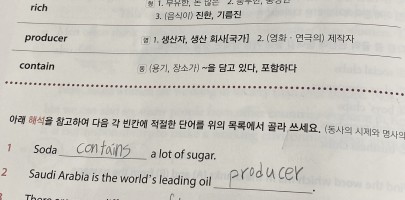 rich
형 1. 부유한, 돈 많은 2. 풍부한, 풍성한
3. (음식이) 진한, 기름진
producer 명 1. 생산자, 생산 회사[국가] 2. (영화·연극의) 제작자
contain 동 (용기, 장소가) ~을 담고 있다, 포함하다
아래 해석을 참고하여 다음 각 빈칸에 적절한 단어를 위의 목록에서 골라 쓰세요. (동사의 시제와 명사의
1 Soda contains a lot of sugar.
2 Saudi Arabia is the world's leading oil producer.
3 There